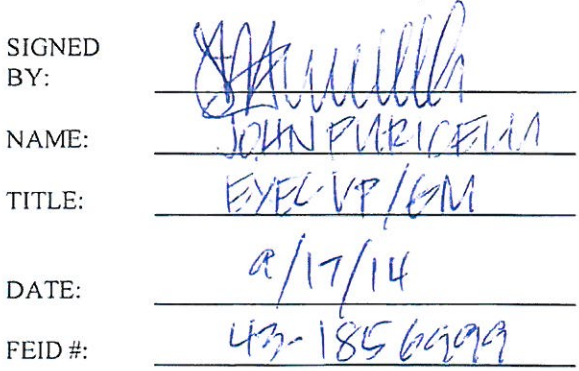 SIGNED
BY:
NAME: JOHN PURICELLI
TITLE: EXEC VP/GM
DATE: 9/17/14
FEID #: 43-1856999